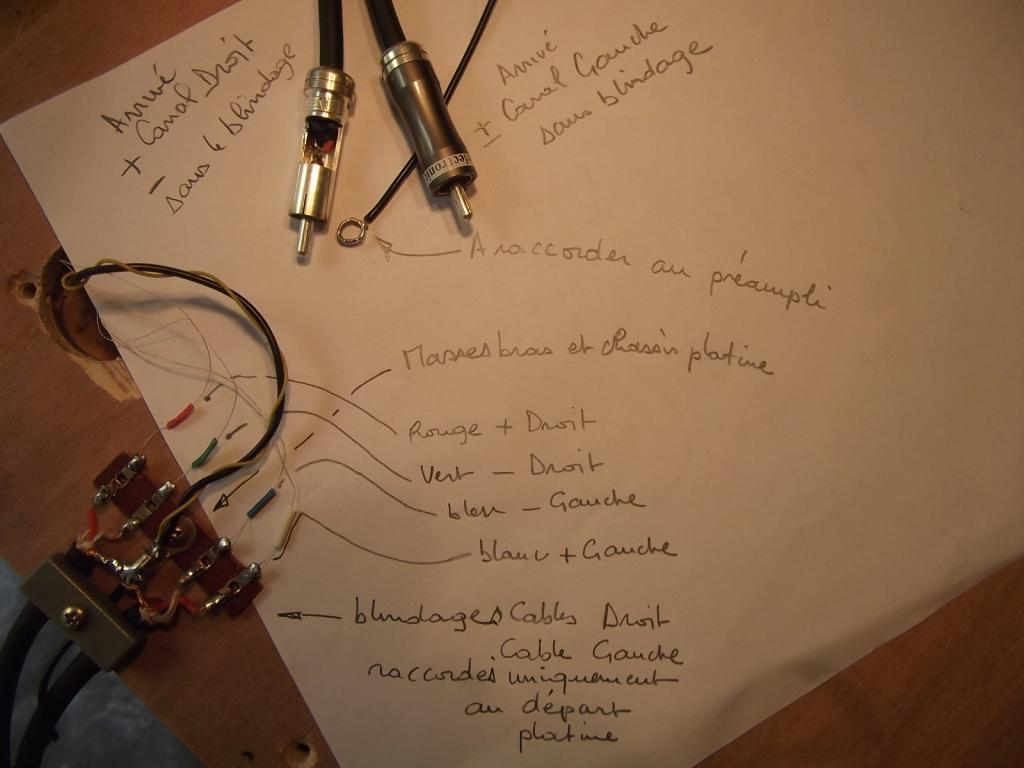 Arrivé
+ Canal Droit
-
sans le blindage
Arrivé
± Canal Gauche
sans blindage
electronic
A raccorder au préampli
Masses bras et chassis platine
Rouge + Droit
Vert - Droit
bleu - Gauche
blanc + Gauche
blindages Cables Droit
Cable Gauche
raccordés uniquement
au départ
platine